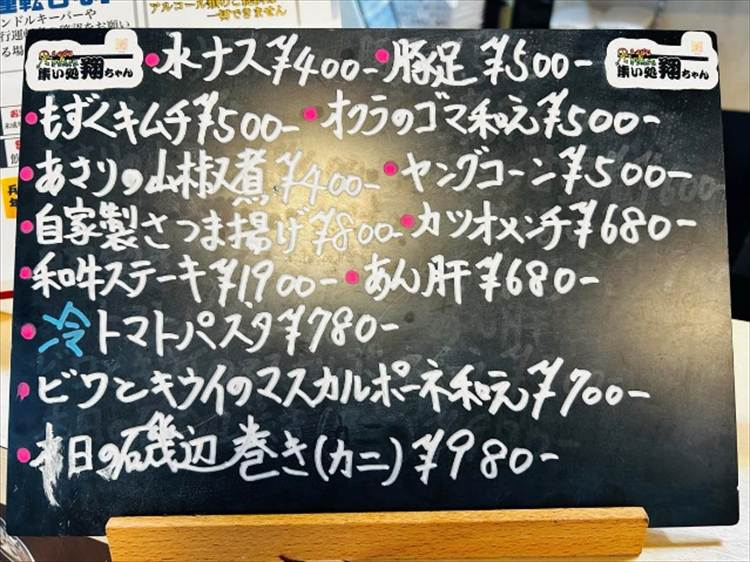 アルコール類のご飲用は
一切できません
ンドルキーパーや
集い処 翔ちゃん
集い処 翔ちゃん
・水ナス¥400-・豚足¥500-
・もずくキムチ¥500-・オクラのゴマ和え¥500-
・あさりの山椒煮¥400-・ヤングコーン¥500-
・自家製さつま揚げ¥800-・カツオメンチ¥680-
・和牛ステーキ¥1900-・あん肝¥680-
・冷トマトパスタ¥780-
・ビワとキウイのマスカルポーネ和え¥700-
・本日の磯辺巻き(カニ)¥980-